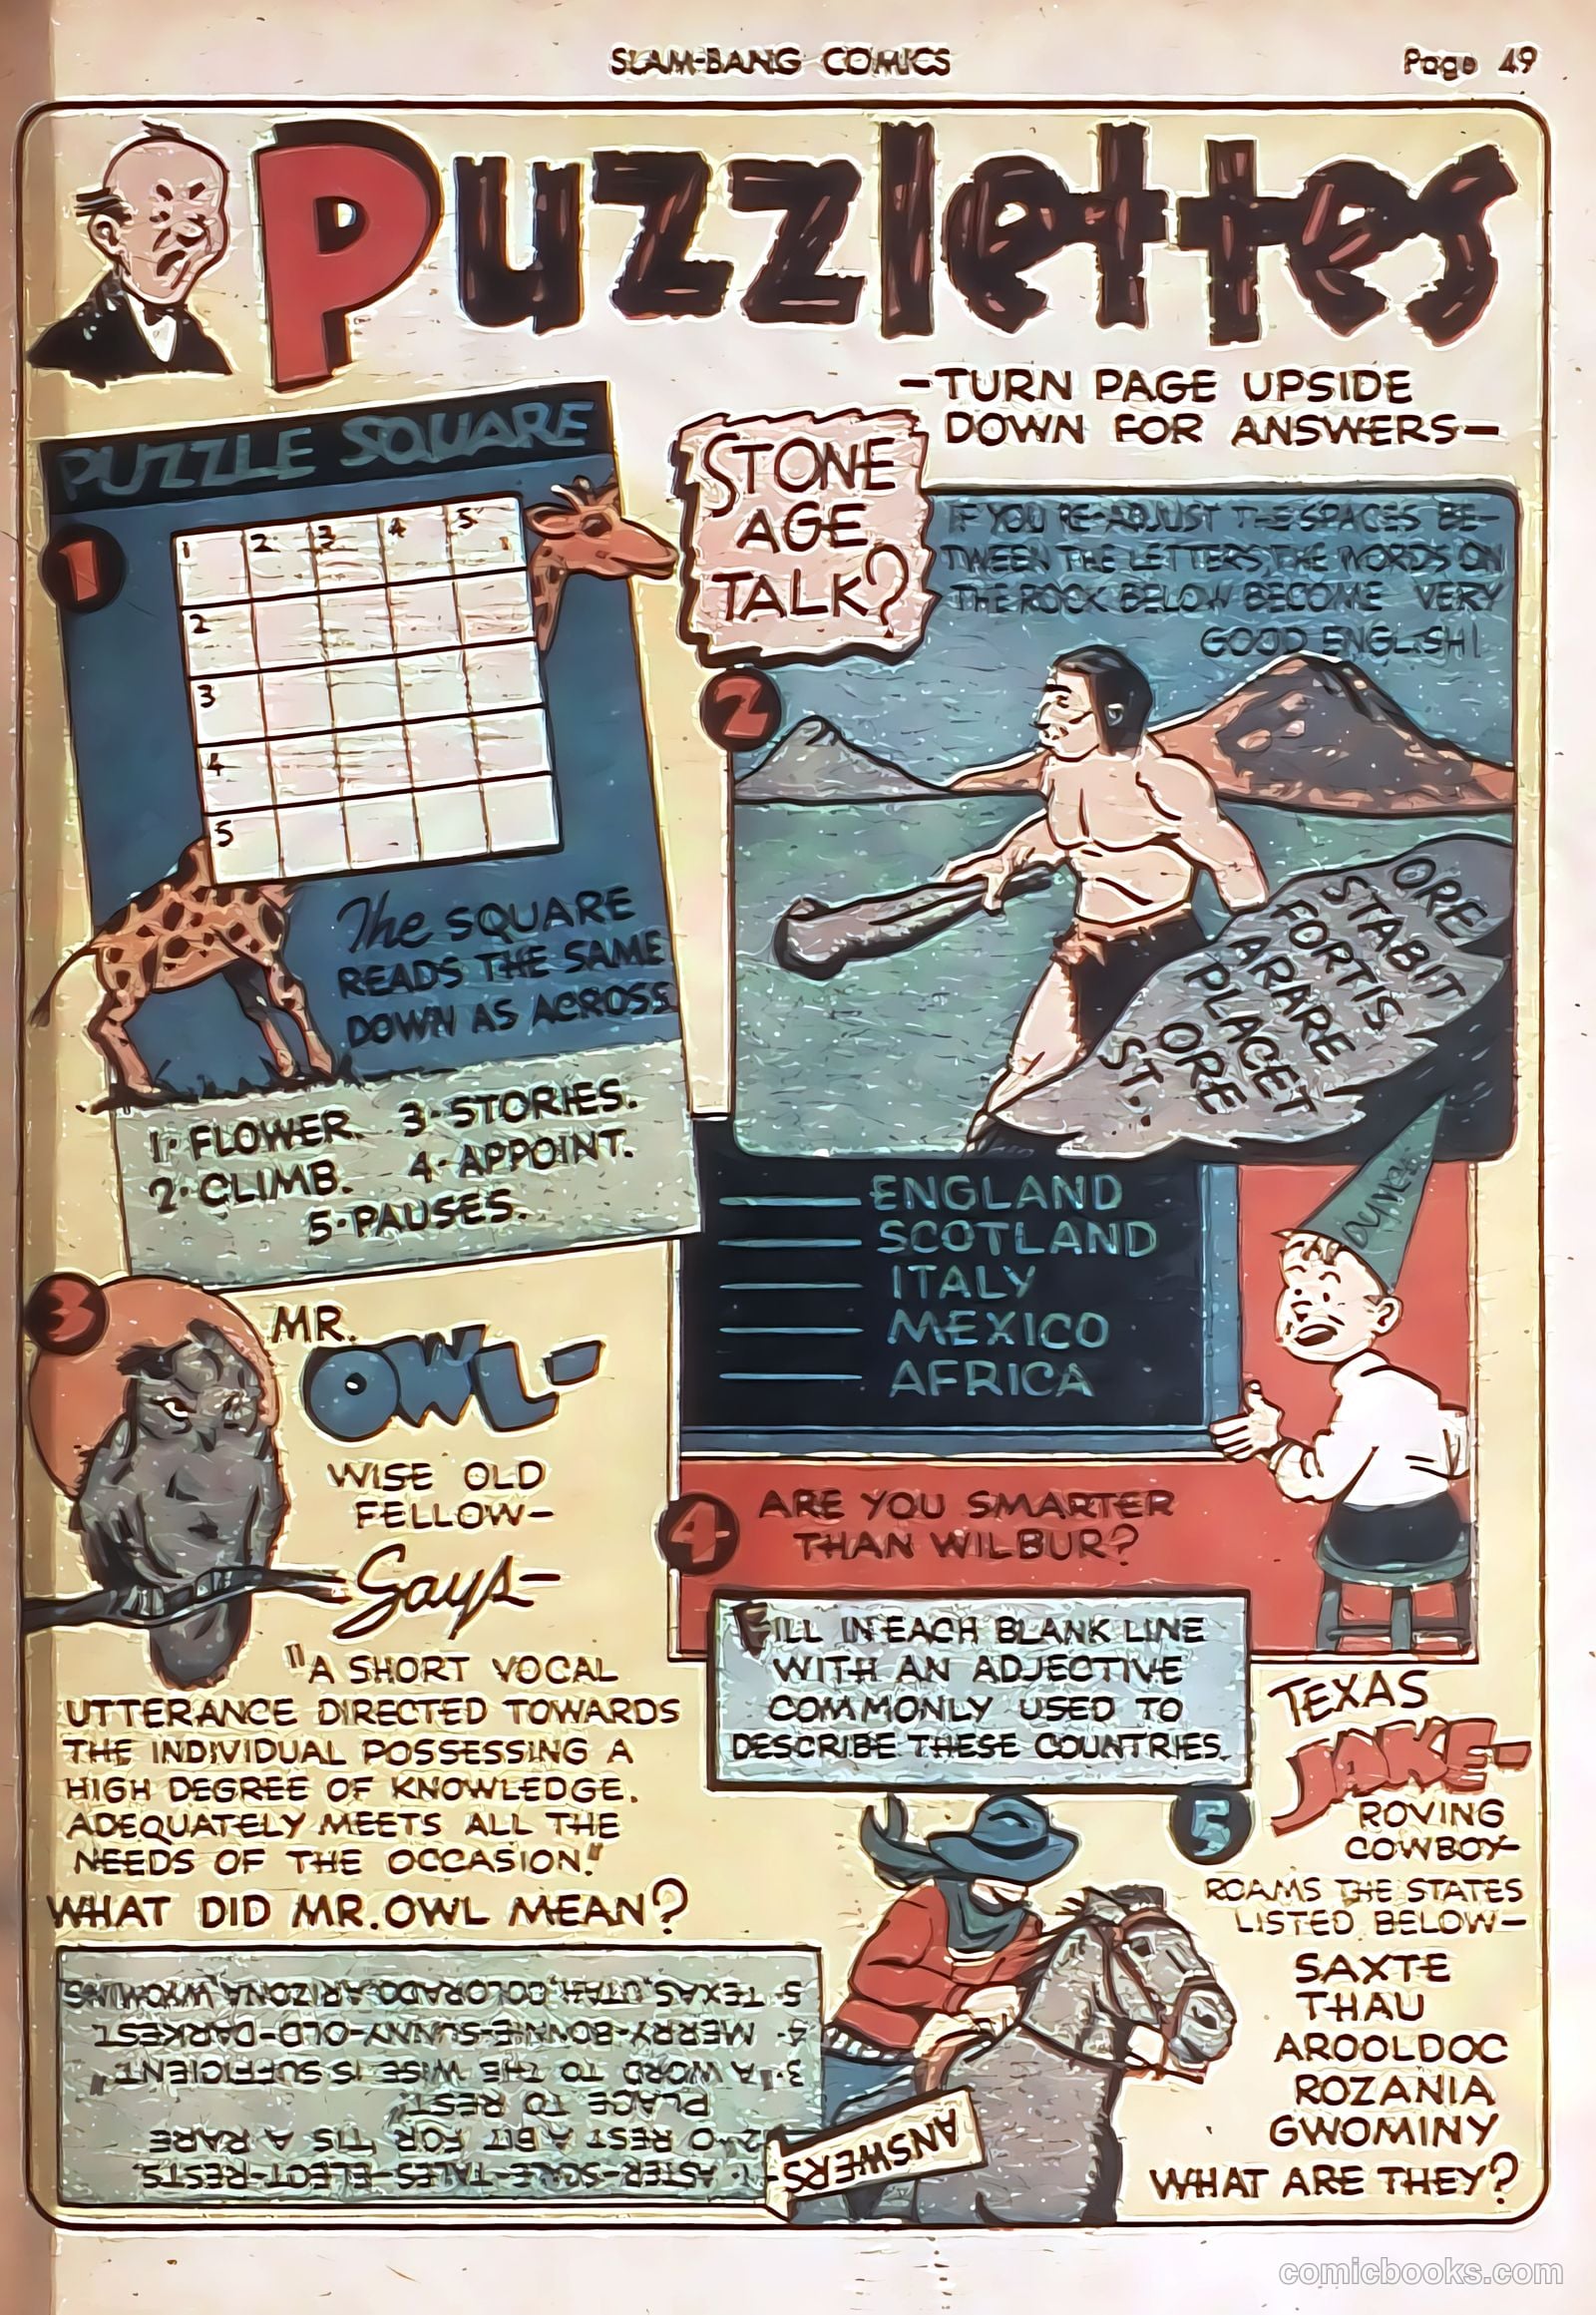 SLAM-BANG COMICS
Page 49
Puzzlettes
-TURN PAGE UPSIDE
DOWN FOR ANSWERS-
PUZZLE SQUARE
1
1 2 3 4 5
2
3
4
5
The SQUARE
READS THE SAME
DOWN AS ACROSS
1-FLOWER. 3-STORIES.
2-CLIMB. 4-APPOINT.
5-PAUSES.
STONE
AGE
TALK?
2
IF YOU RE-ADJUST THE SPACES BE-
TWEEN THE LETTERS, THE WORDS ON
THE ROCK BELOW BECOME VERY
GOOD ENGLISH!
ORE
STABIT
FORTIS
ARARE
PLACET
ORE
ST..
3
MR.
OWL-
WISE OLD
FELLOW-
Says-
"A SHORT VOCAL
UTTERANCE DIRECTED TOWARDS
THE INDIVIDUAL POSSESSING A
HIGH DEGREE OF KNOWLEDGE.
ADEQUATELY MEETS ALL THE
NEEDS OF THE OCCASION."
WHAT DID MR. OWL MEAN?
ENGLAND
SCOTLAND
ITALY
MEXICO
AFRICA
4
ARE YOU SMARTER
THAN WILBUR?
FILL IN EACH BLANK LINE
WITH AN ADJECTIVE
COMMONLY USED TO
DESCRIBE THESE COUNTRIES.
5
TEXAS
JAKE-
ROVING
COWBOY-
ROAMS THE STATES
LISTED BELOW-
SAXTE
THAU
AROOLDOC
ROZANIA
GWOMINY
WHAT ARE THEY?
ANSWERS-
1- ASTER-SCALE-TALES-ELECT-RESTS.
2-"O REST A BIT FOR 'TIS A RARE
PLACE TO REST."
3-"A WORD TO THE WISE IS SUFFICIENT."
4- MERRY-BONNIE-SUNNY-OLD-DARKEST
5-TEXAS, UTAH, COLORADO, ARIZONA, WYOMING
comicbooks.com